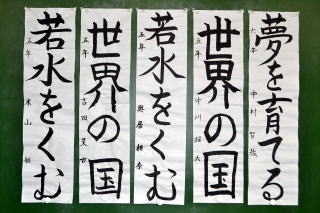 夢を育てる
六年 中村 智哉
世界の国
五年 中川 翔太
若水をくむ
五年 奥居 穂奈
世界の国
五年 吉田
若水をくむ
五年 米山